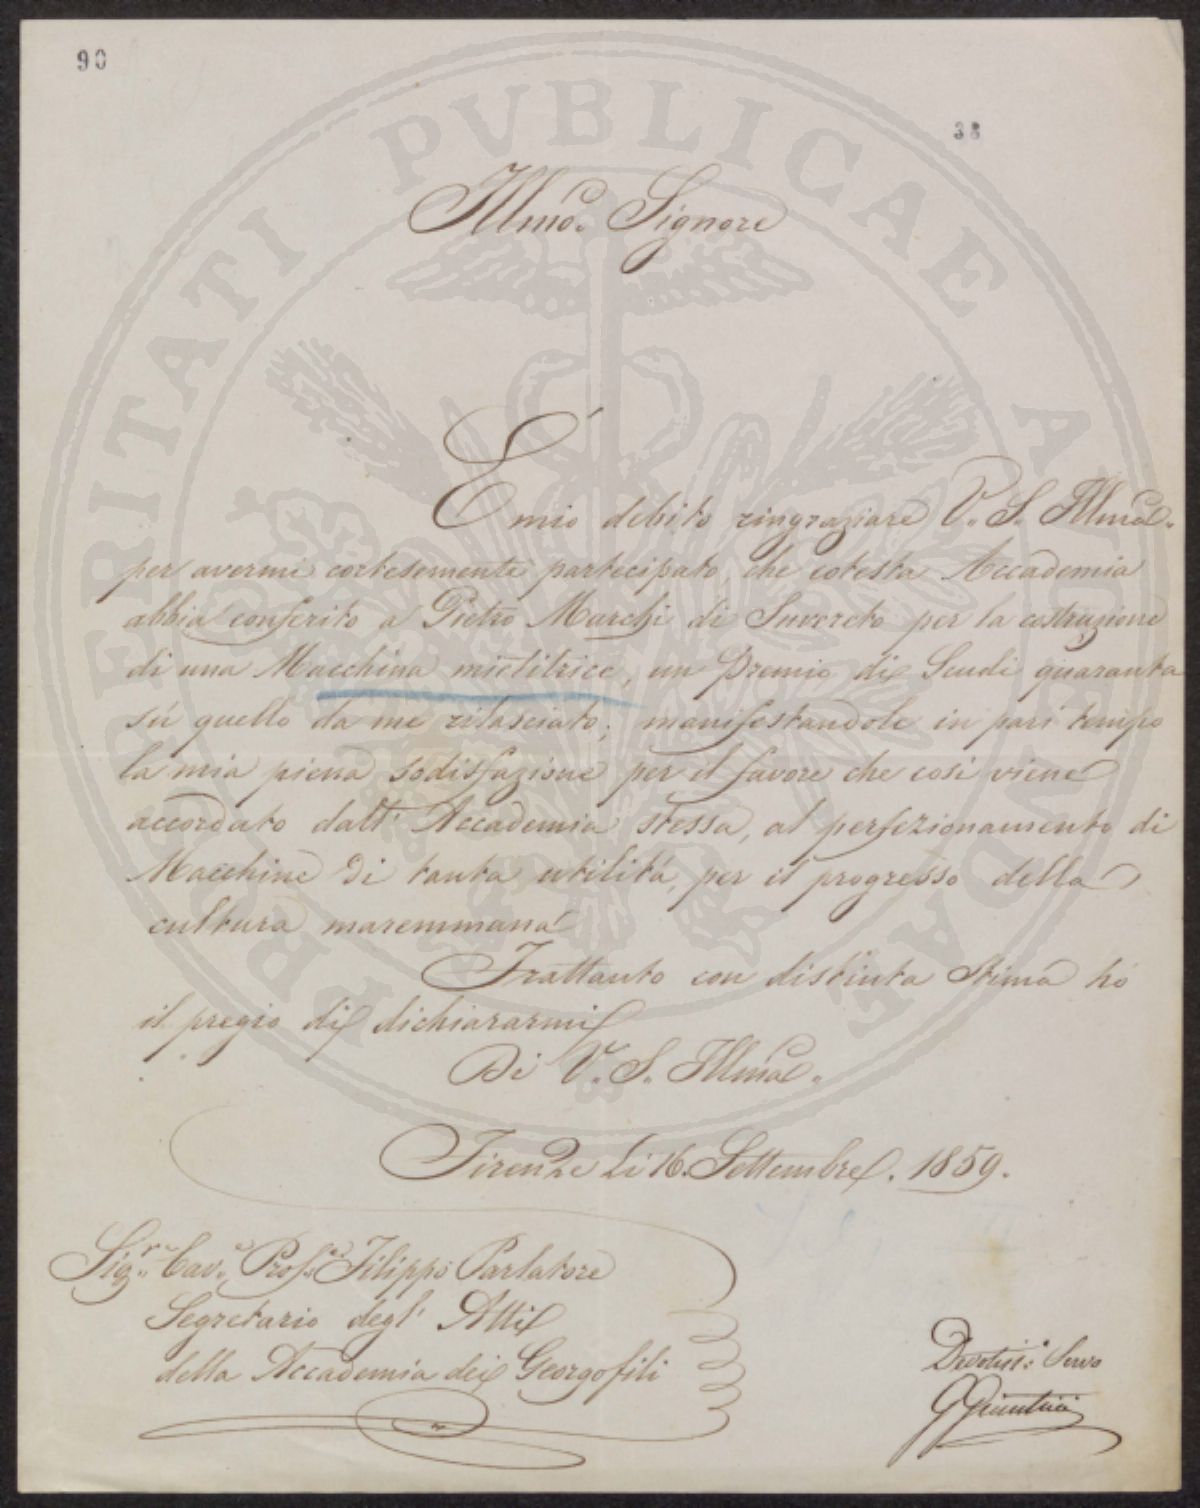 90
38
Illmo. Signore
PROSPERITATI PVBLICAE AVGENDAE
É mio debito ringraziare V. S. Illma.
per avermi cortesemente partecipato, che cotesta Accademia
abbia conferito a Pietro Marchi di Suvereto per la costruzione
di una Macchina mietitrice, un Premio di Scudi quaranta
sù quello da me rilasciato; manifestandole in pari tempo
la mia piena sodisfazione per il favore che così viene
accordato dall' Accademia stessa, al perfezionamento di
Macchine di tanta utilità, per il progresso della
cultura maremmana
Frattanto con distinta stima ho
il pregio di dichiararmi
Di V. S. Illma.
Firenze li 16. Settembre. 1859.
Sigre. Cave. Profre. Filippo Parlatore
Segretario degl' Atti
della Accademia dei Georgofili
Devotiss:o Servo